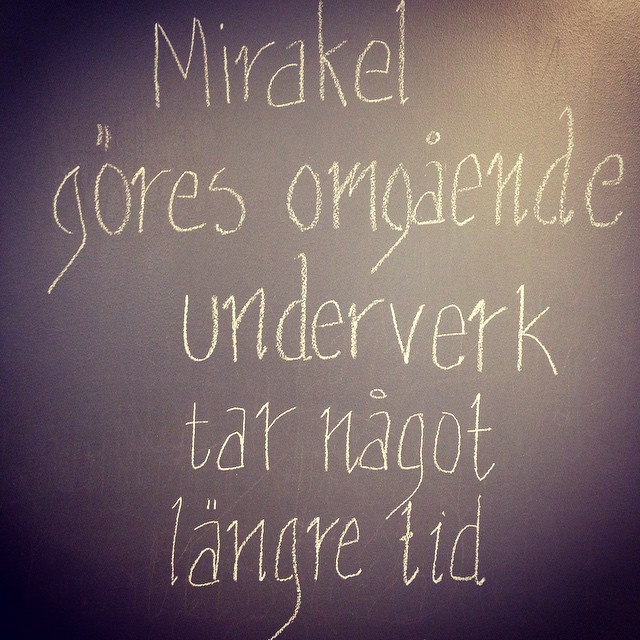 Mirakel
göres omgående
underverk
tar något
längre tid